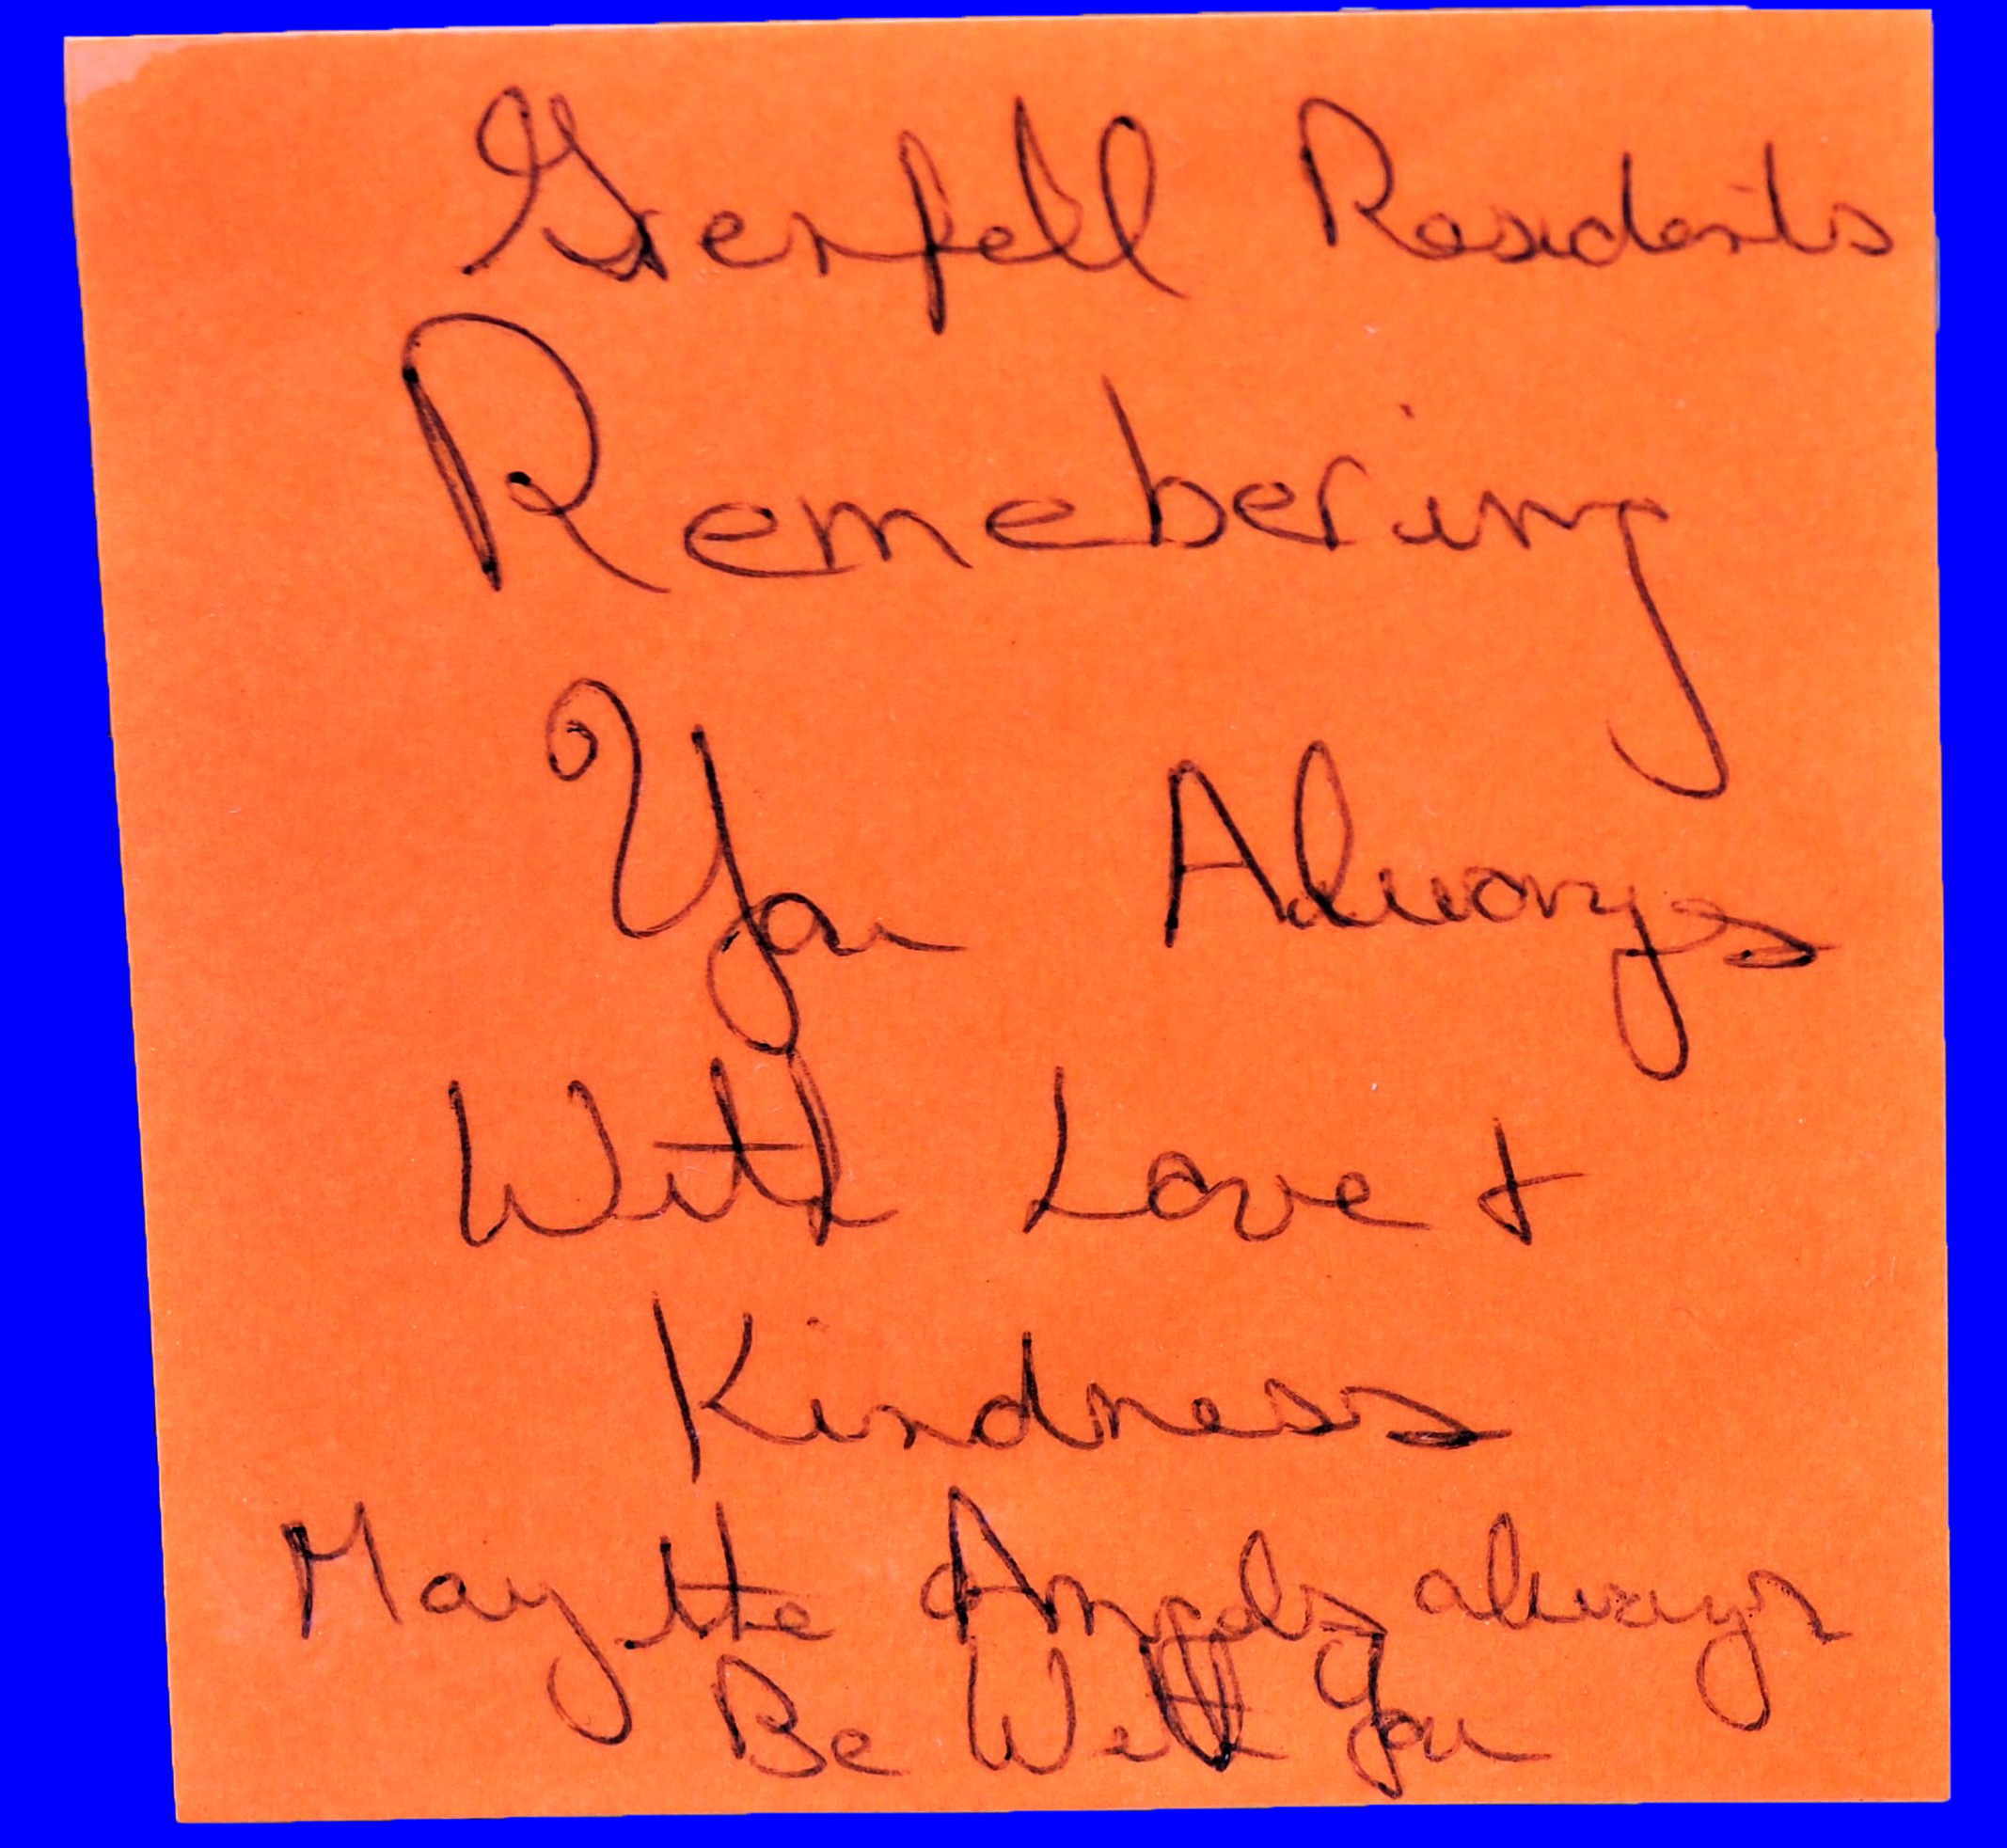 Grenfell Residents
Remebering
You Always
With Love +
Kindness
May the Angels always
Be With You